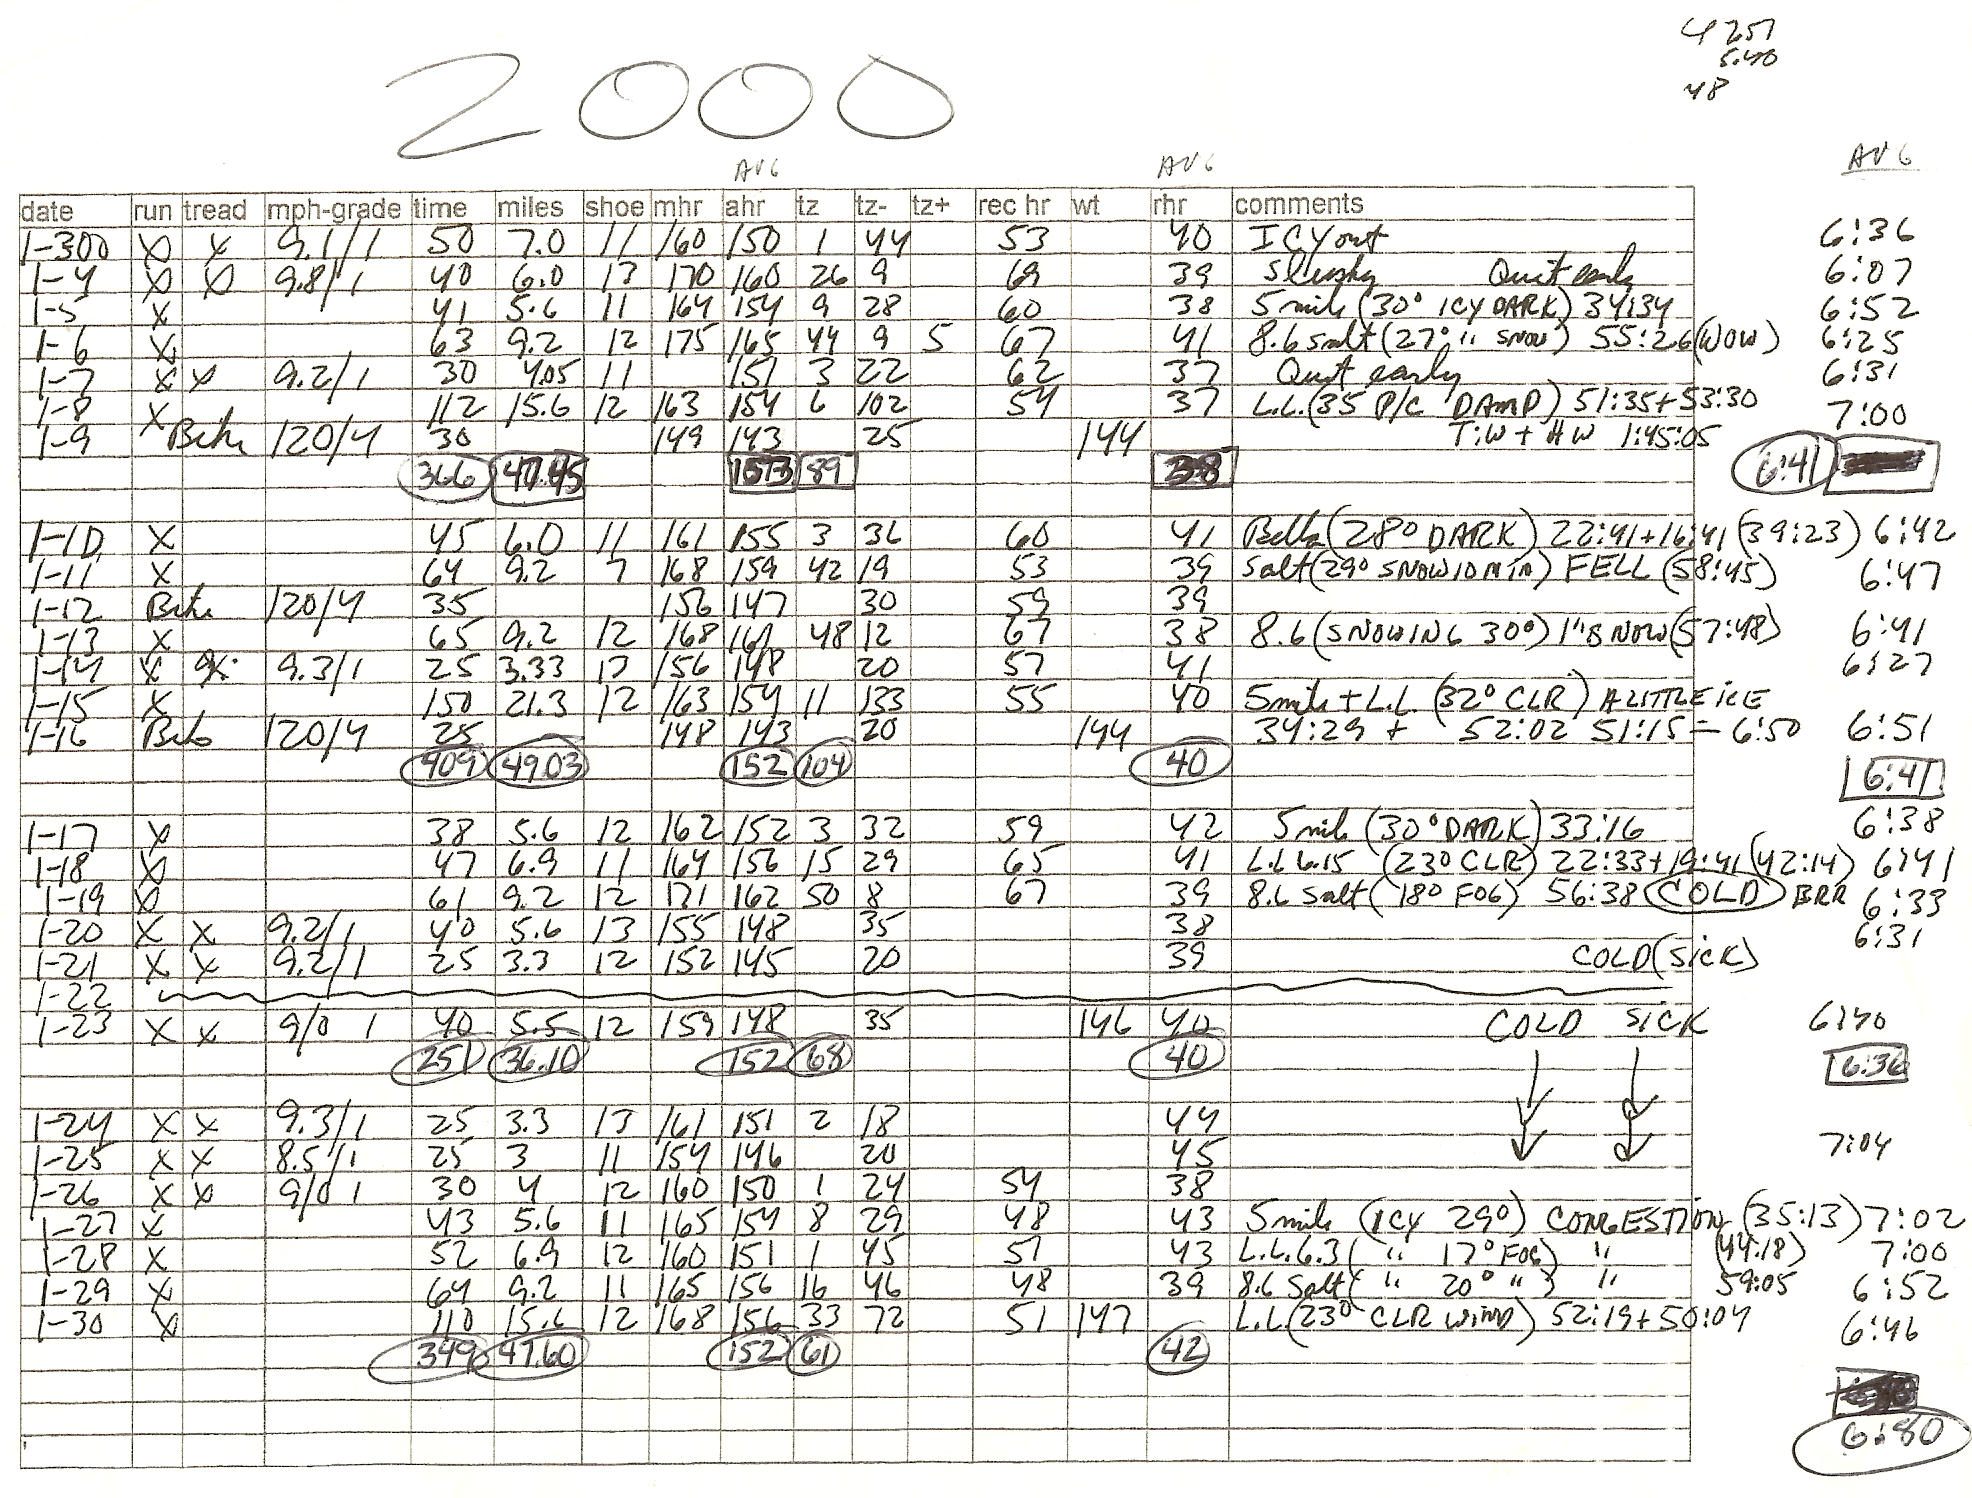 4 257
5.40
48
2000
AVG AVG AVG
date run tread mph-grade time miles shoe mhr ahr tz tz- tz+ rec hr wt rhr comments
1-300 X X 9.1/1 50 7.0 11 160 150 1 44 53 40 ICY out 6:36
1-4 X X 9.8/1 40 6.0 13 170 160 26 9 69 39 Slushy Quit early 6:07
1-5 X 41 5.6 11 164 154 9 28 60 38 5 mile (30° ICY DARK) 34:34 6:52
1-6 X 63 9.2 12 175 165 44 9 5 67 41 8.6 salt (27° 1" SNOW) 55:26 (WOW) 6:25
1-7 X X 9.2/1 30 4.05 11 151 3 22 62 37 Quit early 6:31
1-8 X 112 15.6 12 163 154 6 102 54 37 L.L. (35 P/C DAMP) 51:35+53:30 7:00
1-9 Bike 120/4 30 149 143 25 144 T:W + HW 1:45:05
366 47.45 153 89 38 6:41
1-10 X 45 6.0 11 161 155 3 36 60 41 Bella (28° DARK) 22:41+16:41 (39:23) 6:42
1-11 X 64 9.2 7 168 159 42 19 53 39 Salt (29° SNOW 10 MIN) FELL (58:45) 6:47
1-12 Bike 120/4 35 156 147 30 59 39
1-13 X 65 9.2 12 168 161 48 12 67 38 8.6 (SNOWING 30°) 1" SNOW (57:48) 6:41
1-14 X X 9.3/1 25 3.33 13 156 148 20 57 41 6:27
1-15 X 150 21.3 12 163 154 11 133 55 40 5 mile + L.L. (32° CLR) A LITTLE ICE
1-16 Bike 120/4 25 148 143 20 144 34:29 + 52:02 51:15 = 6:50 6:51
409 49.03 152 104 40 6:41
1-17 X 38 5.6 12 162 152 3 32 59 42 5 mile (30° DARK) 33:16 6:38
1-18 X 47 6.9 11 164 156 15 29 65 41 L.L 6.15 (23° CLR) 22:33+19:41 (42:14) 6:41
1-19 X 61 9.2 12 171 162 50 8 67 39 8.6 Salt (18° FOG) 56:38 COLD BRR 6:33
1-20 X X 9.2/1 40 5.6 13 155 148 35 38 6:31
1-21 X X 9.2/1 25 3.3 12 152 145 20 39 COLD (SICK)
1-22
1-23 X X 9/0 1 40 5.5 12 159 148 35 146 40 COLD SICK 6:40
251 36.10 152 68 40 6:36
1-24 X X 9.3/1 25 3.3 13 161 151 2 18 44
1-25 X X 8.5/1 25 3 11 154 146 20 45 7:04
1-26 X X 9/0 1 30 4 12 160 150 1 24 54 38
1-27 X 43 5.6 11 165 154 8 29 48 43 5 mile (ICY 29°) CONGESTION (35:13) 7:02
1-28 X 52 6.9 12 160 151 1 45 57 43 L.L. 6.3 ( " 17° FOG) " (44:18) 7:00
1-29 X 64 9.2 11 165 156 16 46 48 39 8.6 Salt ( " 20° " ) " 59:05 6:52
1-30 X 110 15.6 12 168 156 33 72 51 147 L.L. (23° CLR WIND) 52:19+50:04 6:46
349 47.60 152 61 42
6:80